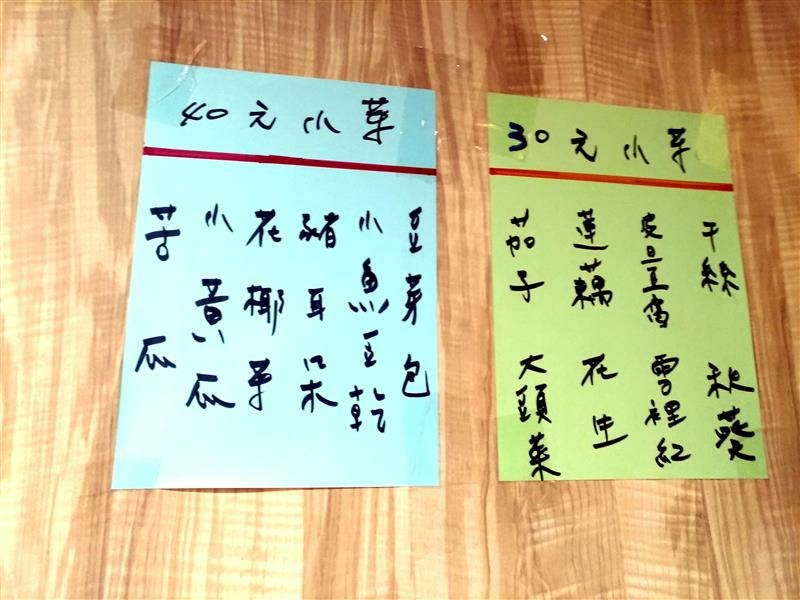 40元小菜
豆芽包
小魚豆乾
豬耳朵
花椰菜
小黃瓜
苦瓜
30元小菜
干絲
皮旦豆腐
蓮藕
茄子
秋葵
雪裡紅
花生
大頭菜